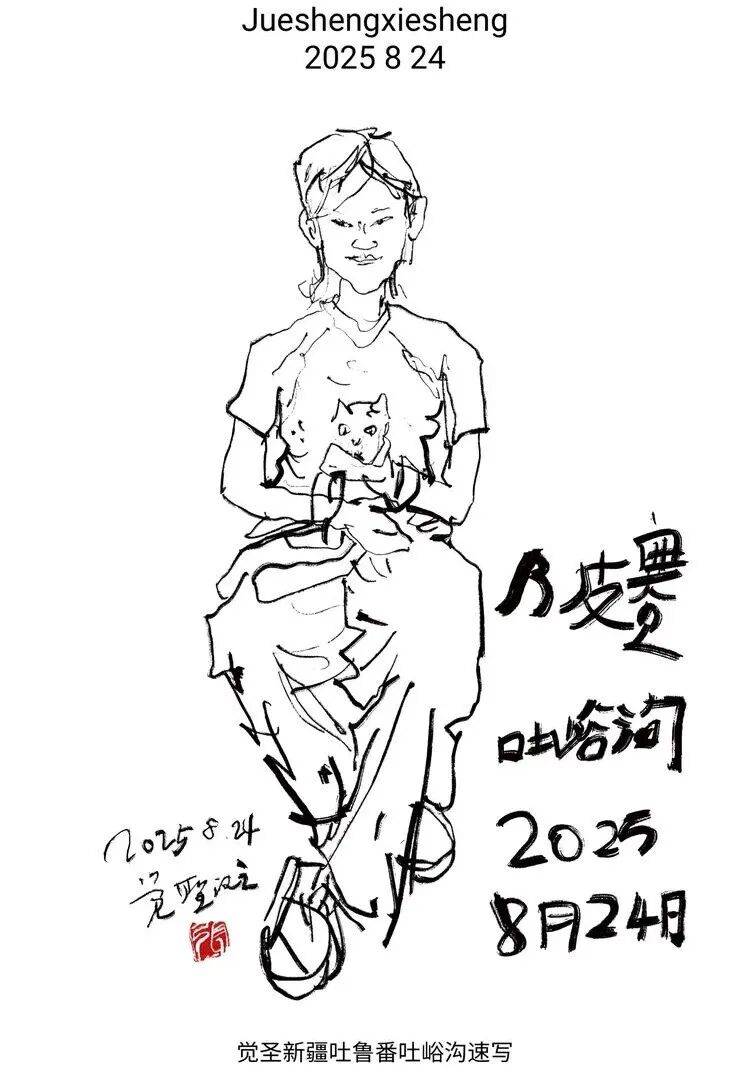 Jueshengxiesheng
2025 8 24
吐峪沟
2025
8月24日
2025 8.24
觉圣
觉圣新疆吐鲁番吐峪沟速写